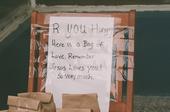 R YOU Hungry
Here is a Bag of
Love. Remember
Jesus Loves you!
So very much.